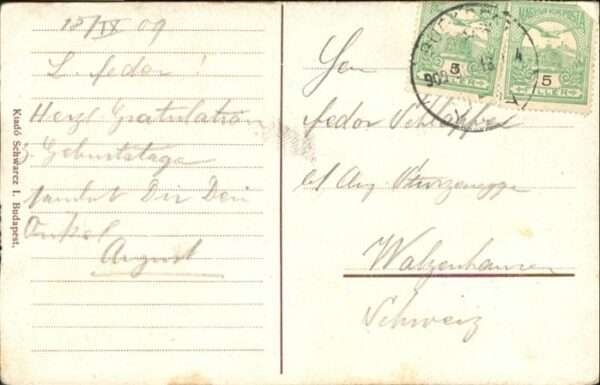 15/IX 09
L. Fedor!
Herzl Gratulation
z. Geburtstage
sendet Dir Dein
Onkel
August
Kiadó Schwarcz I. Budapest.
Herr
Fedor Schläpfer
b/ Aug. Sturzenegger
Walzenhausen
Schweiz
MAGYAR KIR. POSTA
5
5
FILLÉR
BUDAPEST
909